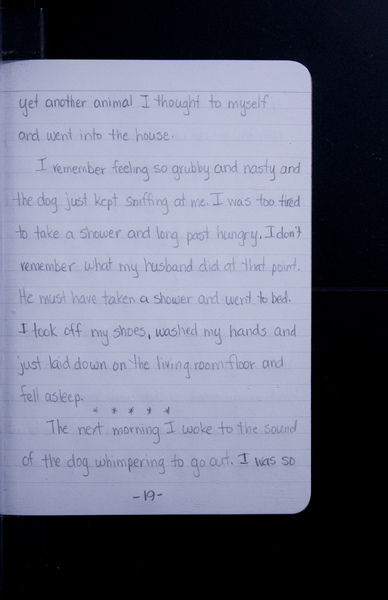 yet another animal I thought to myself
and went into the house.
I remember feeling so grubby and nasty and
the dog just kept sniffing at me. I was too tired
to take a shower and long past hungry. I don't
remember what my husband did at that point.
He must have taken a shower and went to bed.
I took off my shoes, washed my hands and
just laid down on the living room floor and
fell asleep.
* * * * *
The next morning I woke to the sound
of the dog whimpering to go out. I was so
-19-